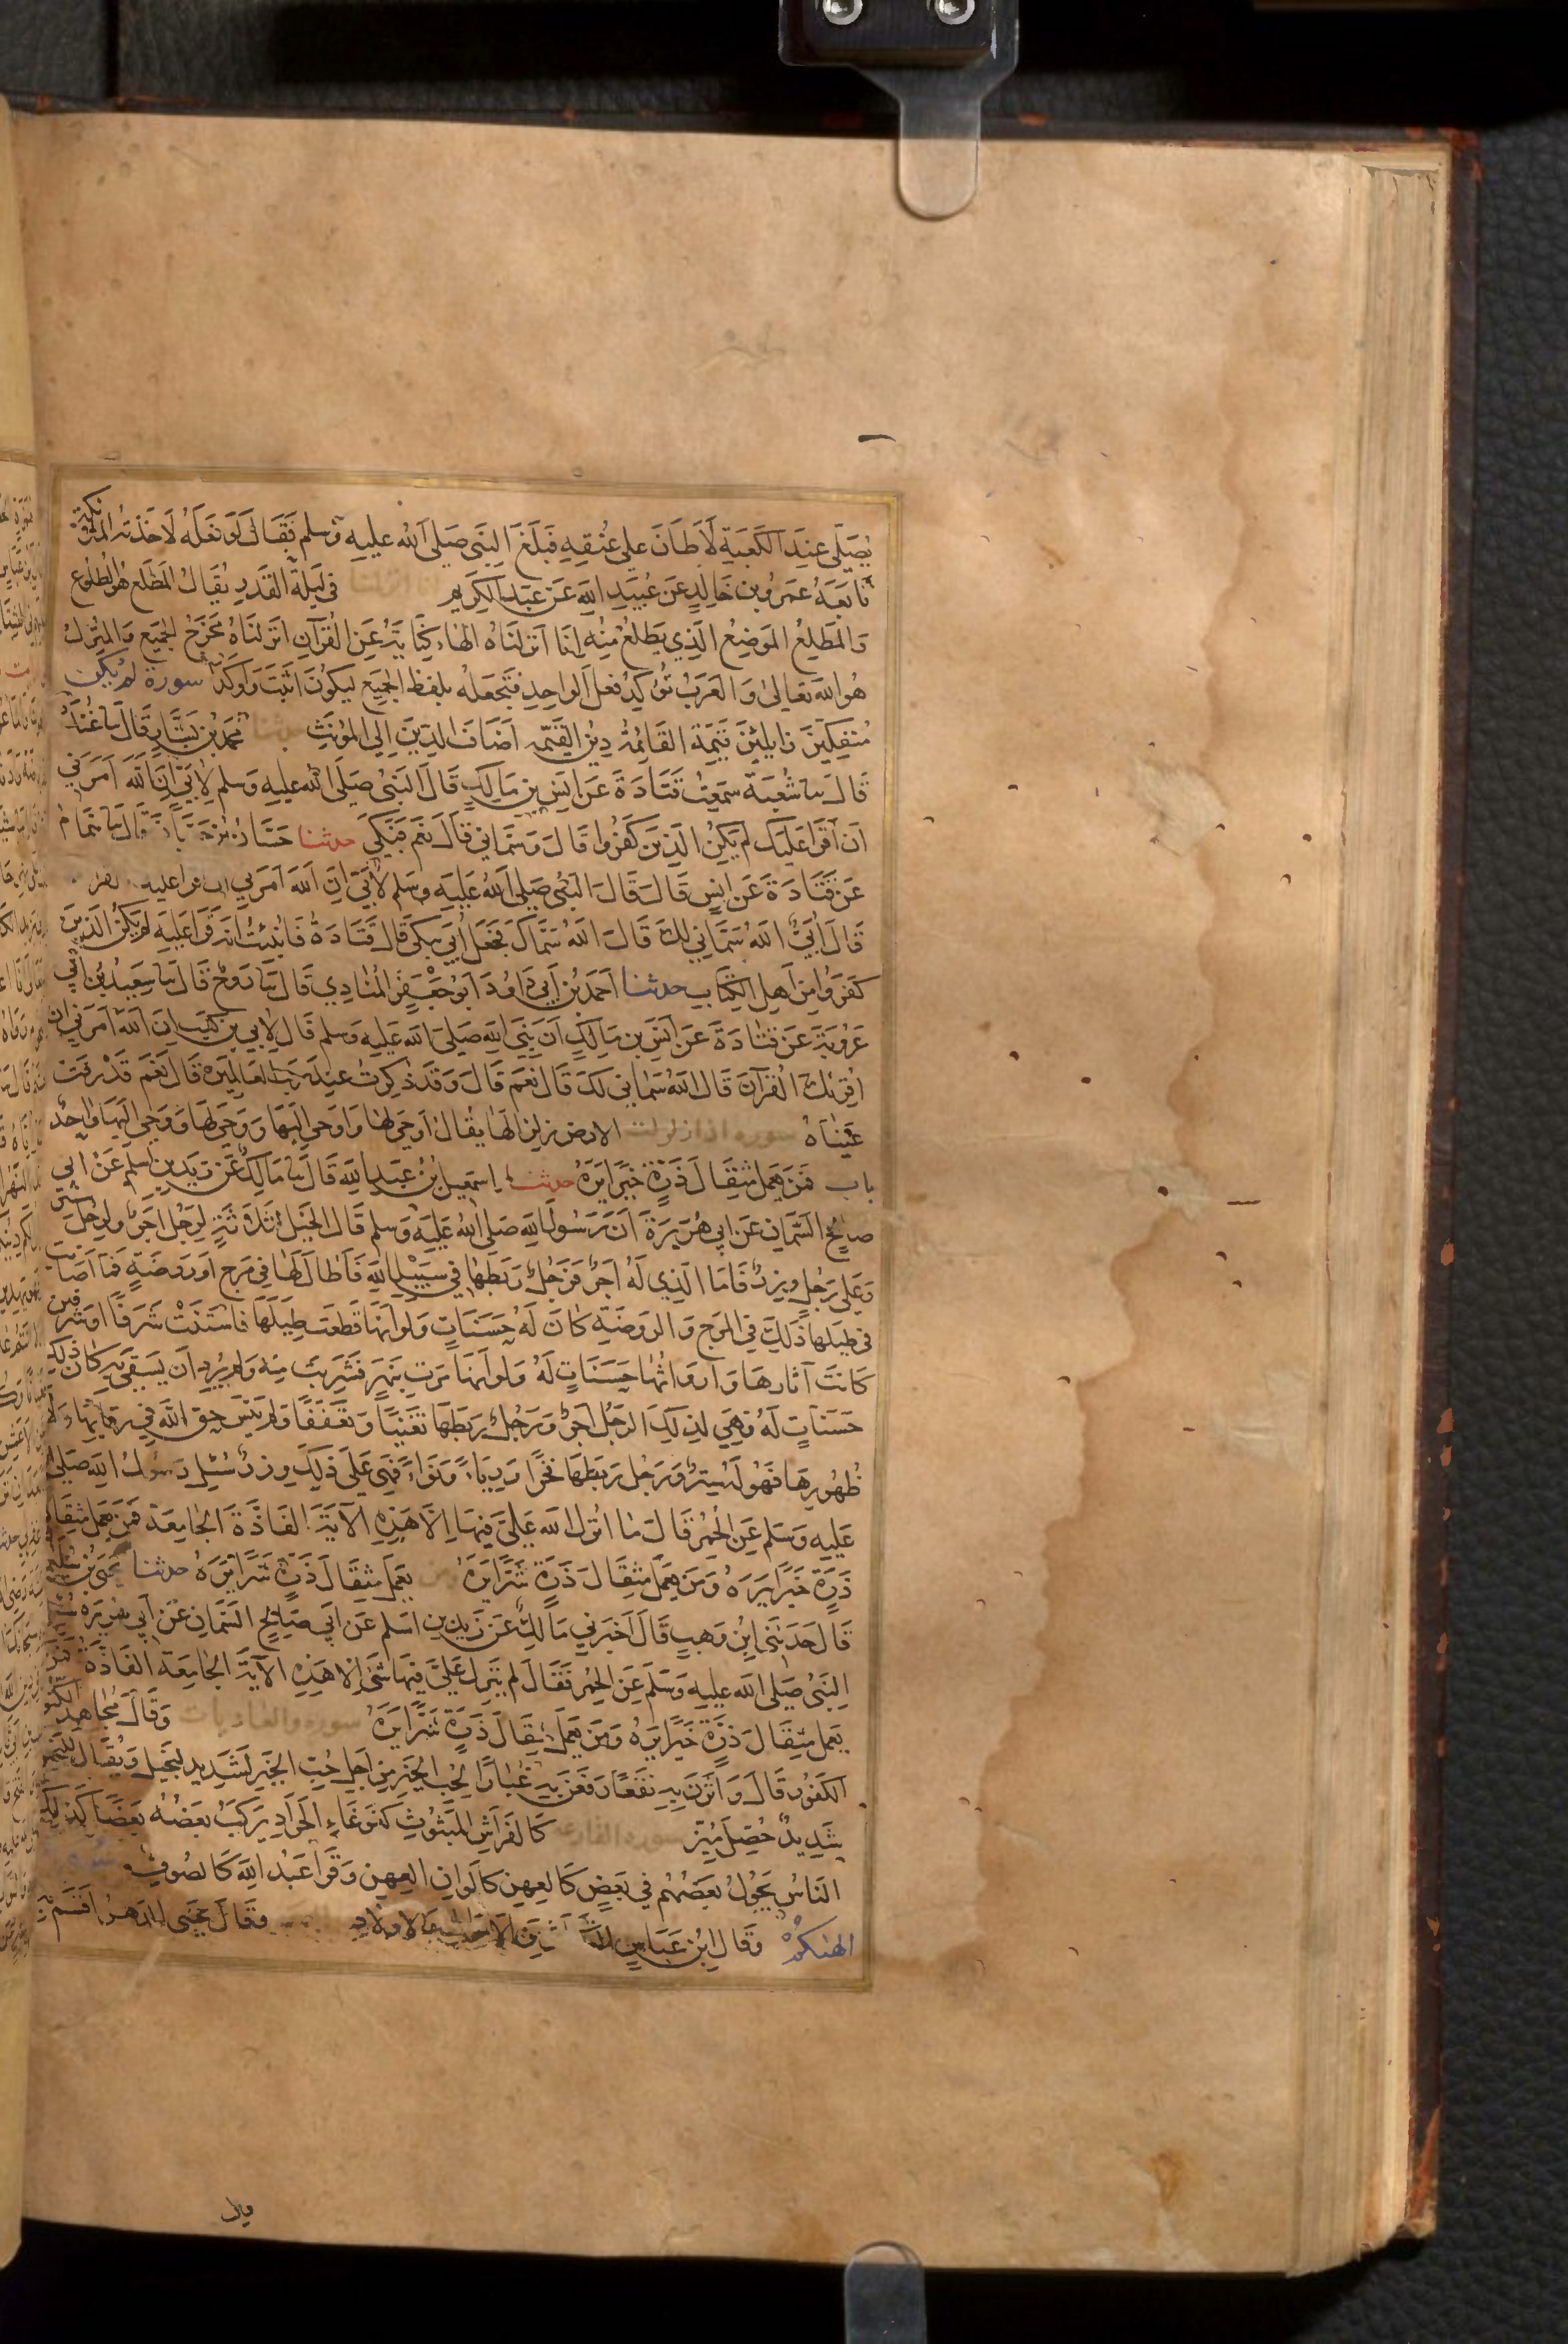 يصلي عند الكعبة لأطأن على عنقه فبلغ النبي صلى الله عليه وسلم فقال لو فعله لأخذته الملائكة
تابعه عمرو بن خالد عن عبيد الله عن عبد الكريم انا انزلنا في ليلة القدر يقال المطلع هو الطلوع
والمطلع الموضع الذي يطلع منه إنا أنزلناه الهاء كناية عن القرآن انزلناه مخرج الجميع والمنزل
هو الله تعالى والعرب توكد فعل الواحد فتجعله بلفظ الجميع ليكون اثبت واوكد سورة لم يكن
منفكين زايلين قيمة القائمة دين القيمة اضاف الدين الى المونث حدثنا محمد بن بشار قال ثنا غندر
قال ثنا شعبة سمعت قتادة عن انس بن مالك قال النبي صلى الله عليه وسلم لأبي إن الله أمرني
أن أقرأ عليك لم يكن الذين كفروا قال وسماني قال نعم فبكى حدثنا حسان بن حسان قال ثنا همام
عن قتادة عن انس قال قال النبي صلى الله عليه وسلم لأبي ان الله أمرني ان اقرا عليك القران
قال أبي الله سماني لك قال الله سماك فجعل أبي يبكي قال قتادة فانبئت انه قرا عليه لم يكن الذين
كفروا من أهل الكتاب حدثنا احمد بن أبي داود ابو جعفر المنادي قال ثنا روح قال ثنا سعيد بن أبي
عروبة عن قتادة عن أنس بن مالك ان نبي الله صلى الله عليه وسلم قال لابي بن كعب ان الله امرني ان
اقرئك القرآن قال الله سماني لك قال نعم قال وقد ذكرت عند رب العالمين قال نعم فذرفت
عيناه سورة اذا زلزلت الارض زلزالها يقال أوحى لها واوحى اليها ووحى لها ووحى اليها واحد
باب فمن يعمل مثقال ذرة خيرا يره حدثنا إسمعيل بن عبد الله قال ثنا مالك عن زيد بن اسلم عن ابي
صالح السمان عن ابي هريرة أن رسول الله صلى الله عليه وسلم قال الخيل ثلاثة لرجل اجر ولرجل ستر
وعلى رجل وزر فاما الذي له اجر فرجل ربطها في سبيل الله فأطال لها في مرج او روضة فما أصابت
في طيلها ذلك في المرج والروضة كان له حسنات ولو انها قطعت طيلها فاستنت شرفا او شرفين
كانت آثارها وارواثها حسنات له ولو أنها مرت بنهر فشربت منه ولم يرد ان يسقي به كان ذلك
حسنات له فهي لذلك الرجل اجر ورجل ربطها تغنيا وتعففا ولم ينس حق الله في رقابها ولا
ظهورها فهو له ستر ورجل ربطها فخرا ورياء ونواء فهي على ذلك وزر سئل رسول الله صلى
عليه وسلم عن الحمر قال ما انزل الله علي فيها إلا هذه الآية الفاذة الجامعة فمن يعمل مثقال
ذرة خيرا يره ومن يعمل مثقال ذرة شرا يره ومن يعمل مثقال ذرة شرا يره حدثنا يحيى بن سليمان
قال حدثني ابن وهب قال اخبرني مالك عن زيد بن اسلم عن ابي صالح السمان عن أبي هريرة سئل
النبي صلى الله عليه وسلم عن الحمر فقال لم ينزل علي فيها شئ إلا هذه الآية الجامعة الفاذة فمن
يعمل مثقال ذرة خيرا يره ومن يعمل مثقال ذرة شرا يره سورة والعاديات وقال مجاهد الكنود
الكفور قال وأثرن به نقعا رفعن به غبارا لحب الخير من اجل حب الخير لشديد لبخيل ويقال للبخيل
شديد حصل ميز سورة القارعة كالفراش المبثوث كغوغاء الجراد يركب بعضه بعضا كذلك
الناس يجول بعضهم في بعض كالعهن كالوان العهن وقرأ عبد الله كالصوف سورة
الهيكم وقال ابن عباس التكاثر من الاموال والاولاد وقال يحيى الدهر اقسم به
قال